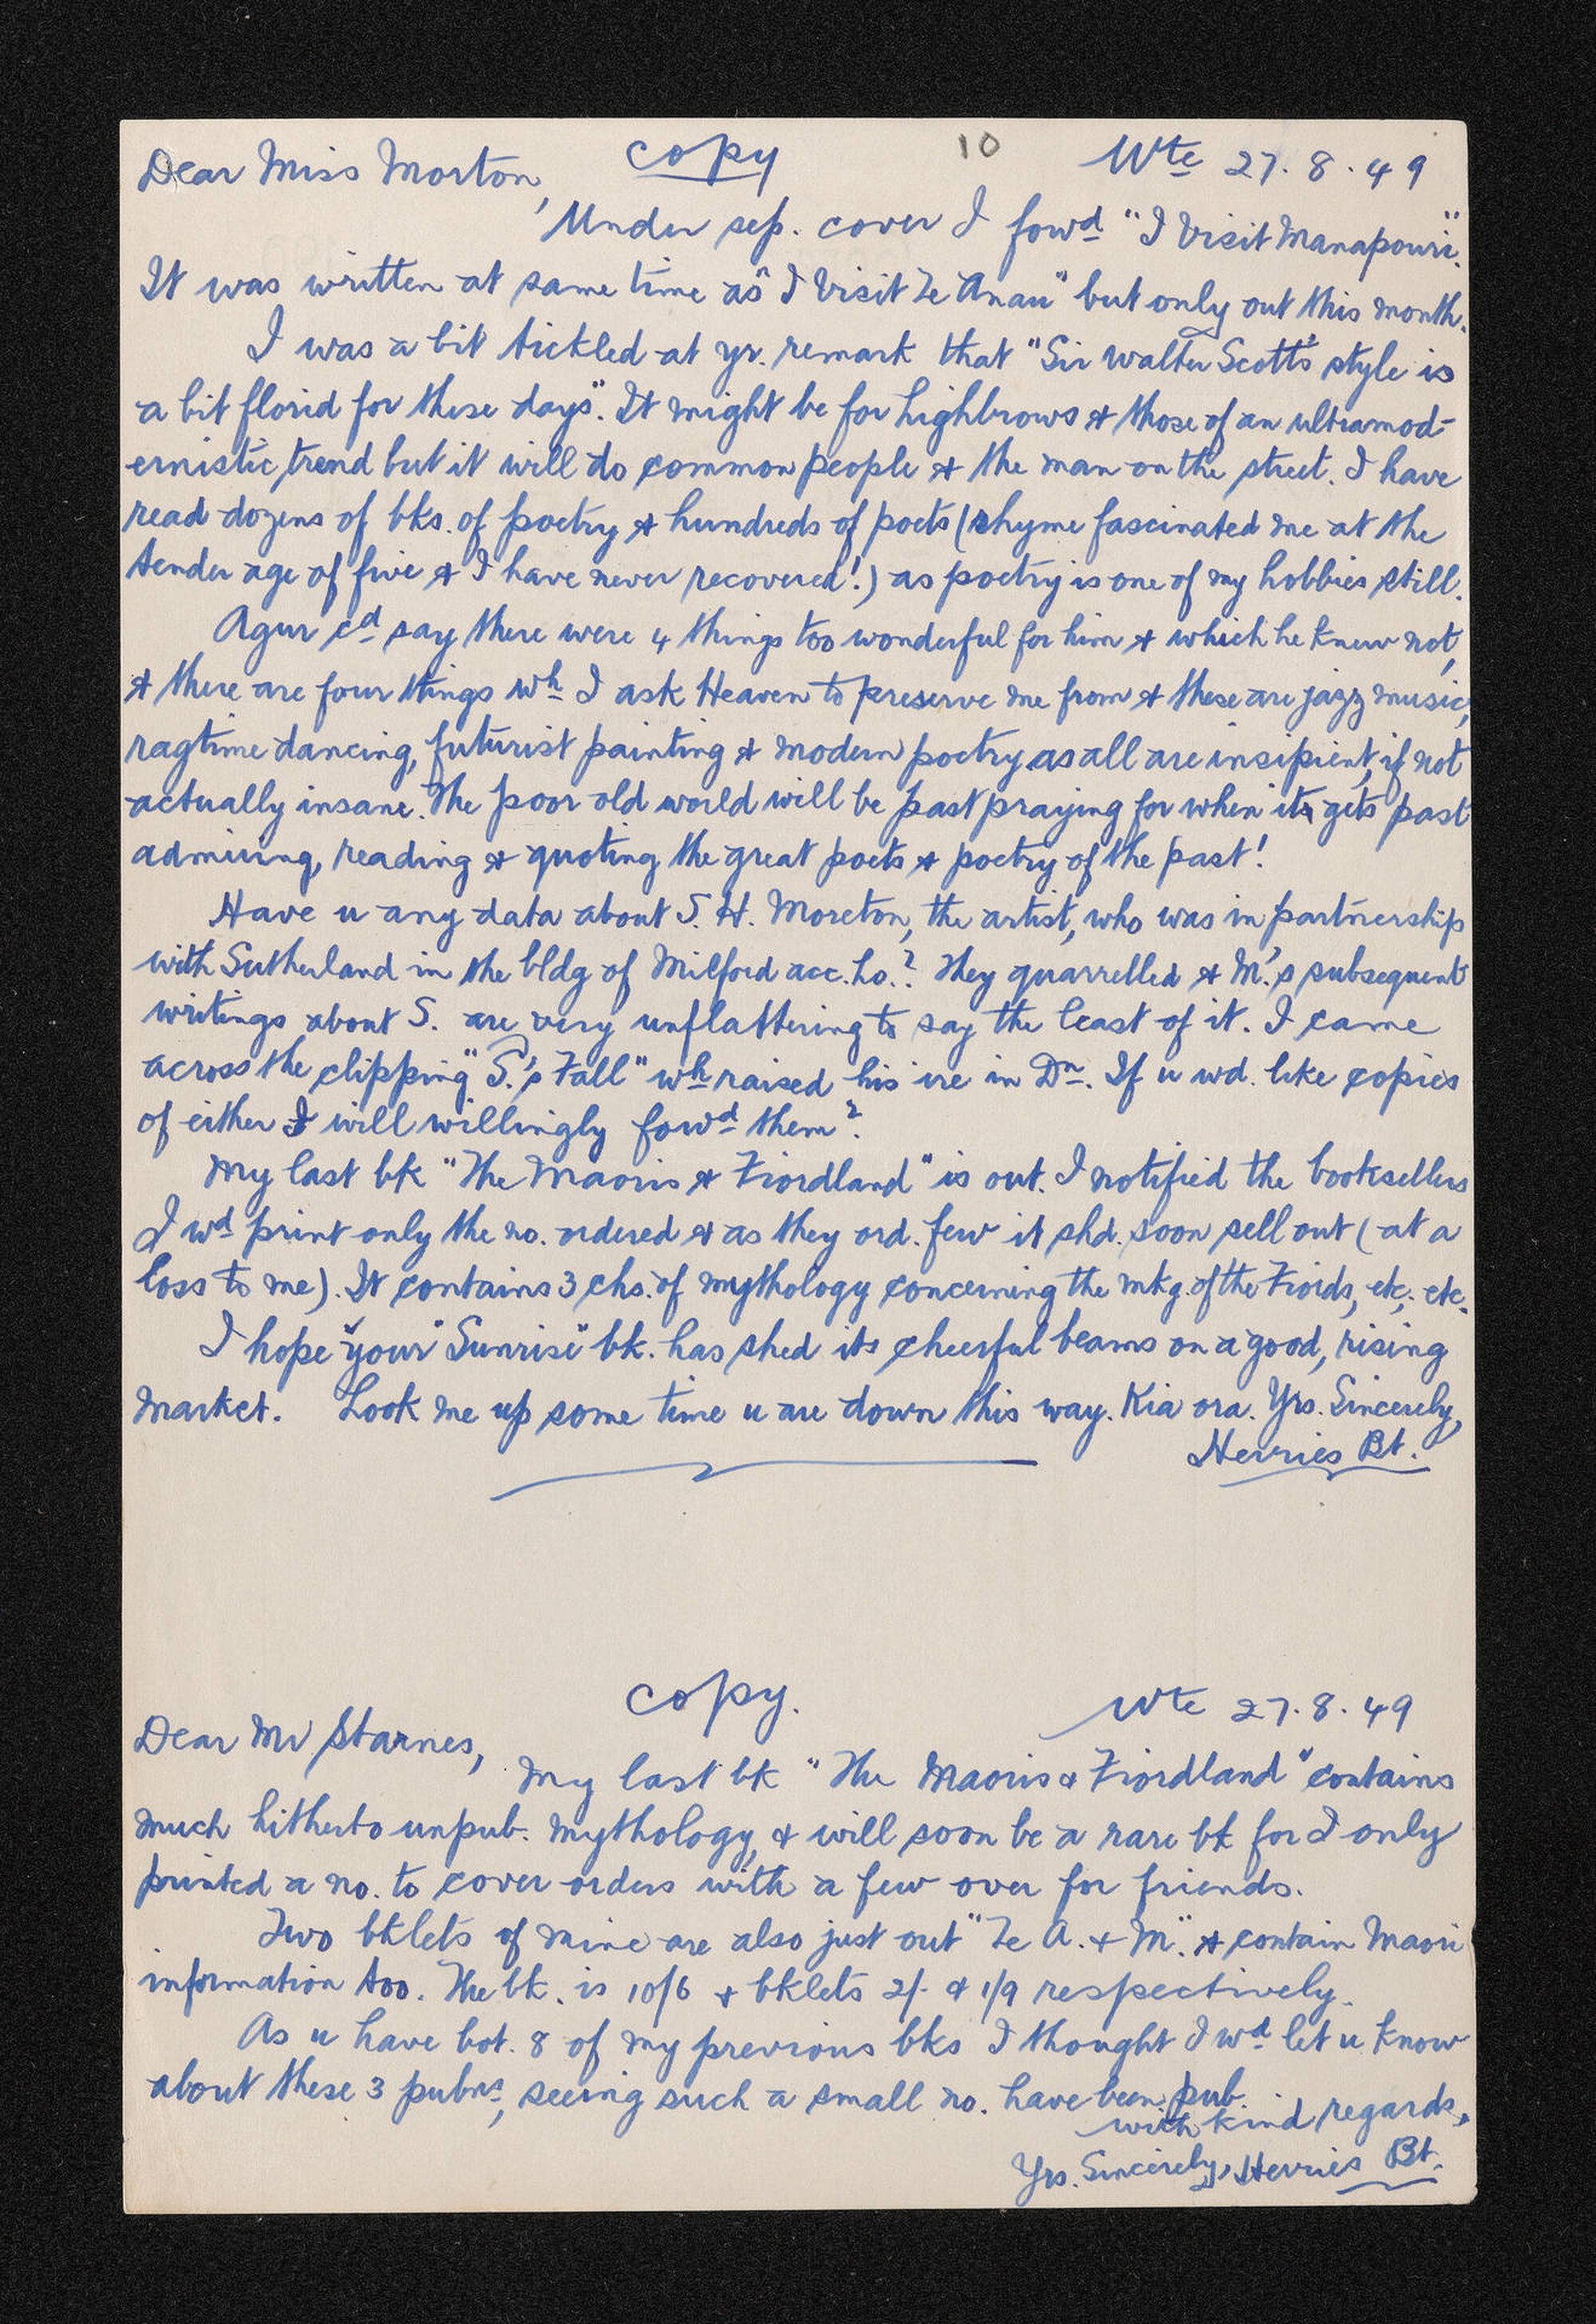 Dear Miss Morton, copy 10 Wte 27. 8. 49
Under sep. cover I fowd "I Visit Manapouri".
It was written at same time as "I Visit Te Anau" but only out this month.
I was a bit tickled at yr. remark that "Sir Walter Scott's style is
a bit florid for these days". It might be for highbrows & those of an ultramod-
ernistic trend but it will do common people & the man on the street. I have
read dozens of bks. of poetry & hundreds of poets (rhyme fascinated me at the
tender age of five & I have never recovered!) as poetry is one of my hobbies still.
Agur cd say there were 4 things too wonderful for him & which he knew not,
& there are four things wh I ask Heaven to preserve me from & these are jazz music,
ragtime dancing, futurist painting & modern poetry as all are insipient, if not
actually insane. The poor old world will be past praying for when it gets past
admiring, reading & quoting the great poets & poetry of the past!
Have u any data about S. H. Moreton, the artist, who was in partnership
with Sutherland in the bldg of Milford acc. ho.? They quarrelled & M.'s subsequent
writings about S. are very unflattering to say the least of it. I came
across the clipping "S.'s Fall" wh raised his ire in Dn. If u wd. like copies
of either I will willingly fowd them?
My last bk "The Maoris & Fiordland" is out. I notified the booksellers
I wd print only the no. ordered & as they ord. few it shd. soon sell out (at a
loss to me). It contains 3 chs. of mythology concerning the mkg. of the Fiords, etc. etc.
I hope your "Sunrise" bk. has shed its cheerful beams on a good, rising
market. Look me up some time u are down this way. Kia ora. Yrs. Sincerely,
Herries Bt.
copy. Wte 27. 8. 49
Dear Mr Starnes,
My last bk "The Maoris & Fiordland" contains
much hitherto unpub. mythology, & will soon be a rare bk for I only
printed a no. to cover orders with a few over for friends.
Two bklets of mine are also just out "Te A. & M." & contain Maori
information too. The bk. is 10/6 & bklets 2/- & 1/9 respectively.
As u have bot. 8 of my previous bks I thought I wd let u know
about these 3 pubns, seeing such a small no. have been pub.
with kind regards,
Yrs. Sincerely, Herries Bt.